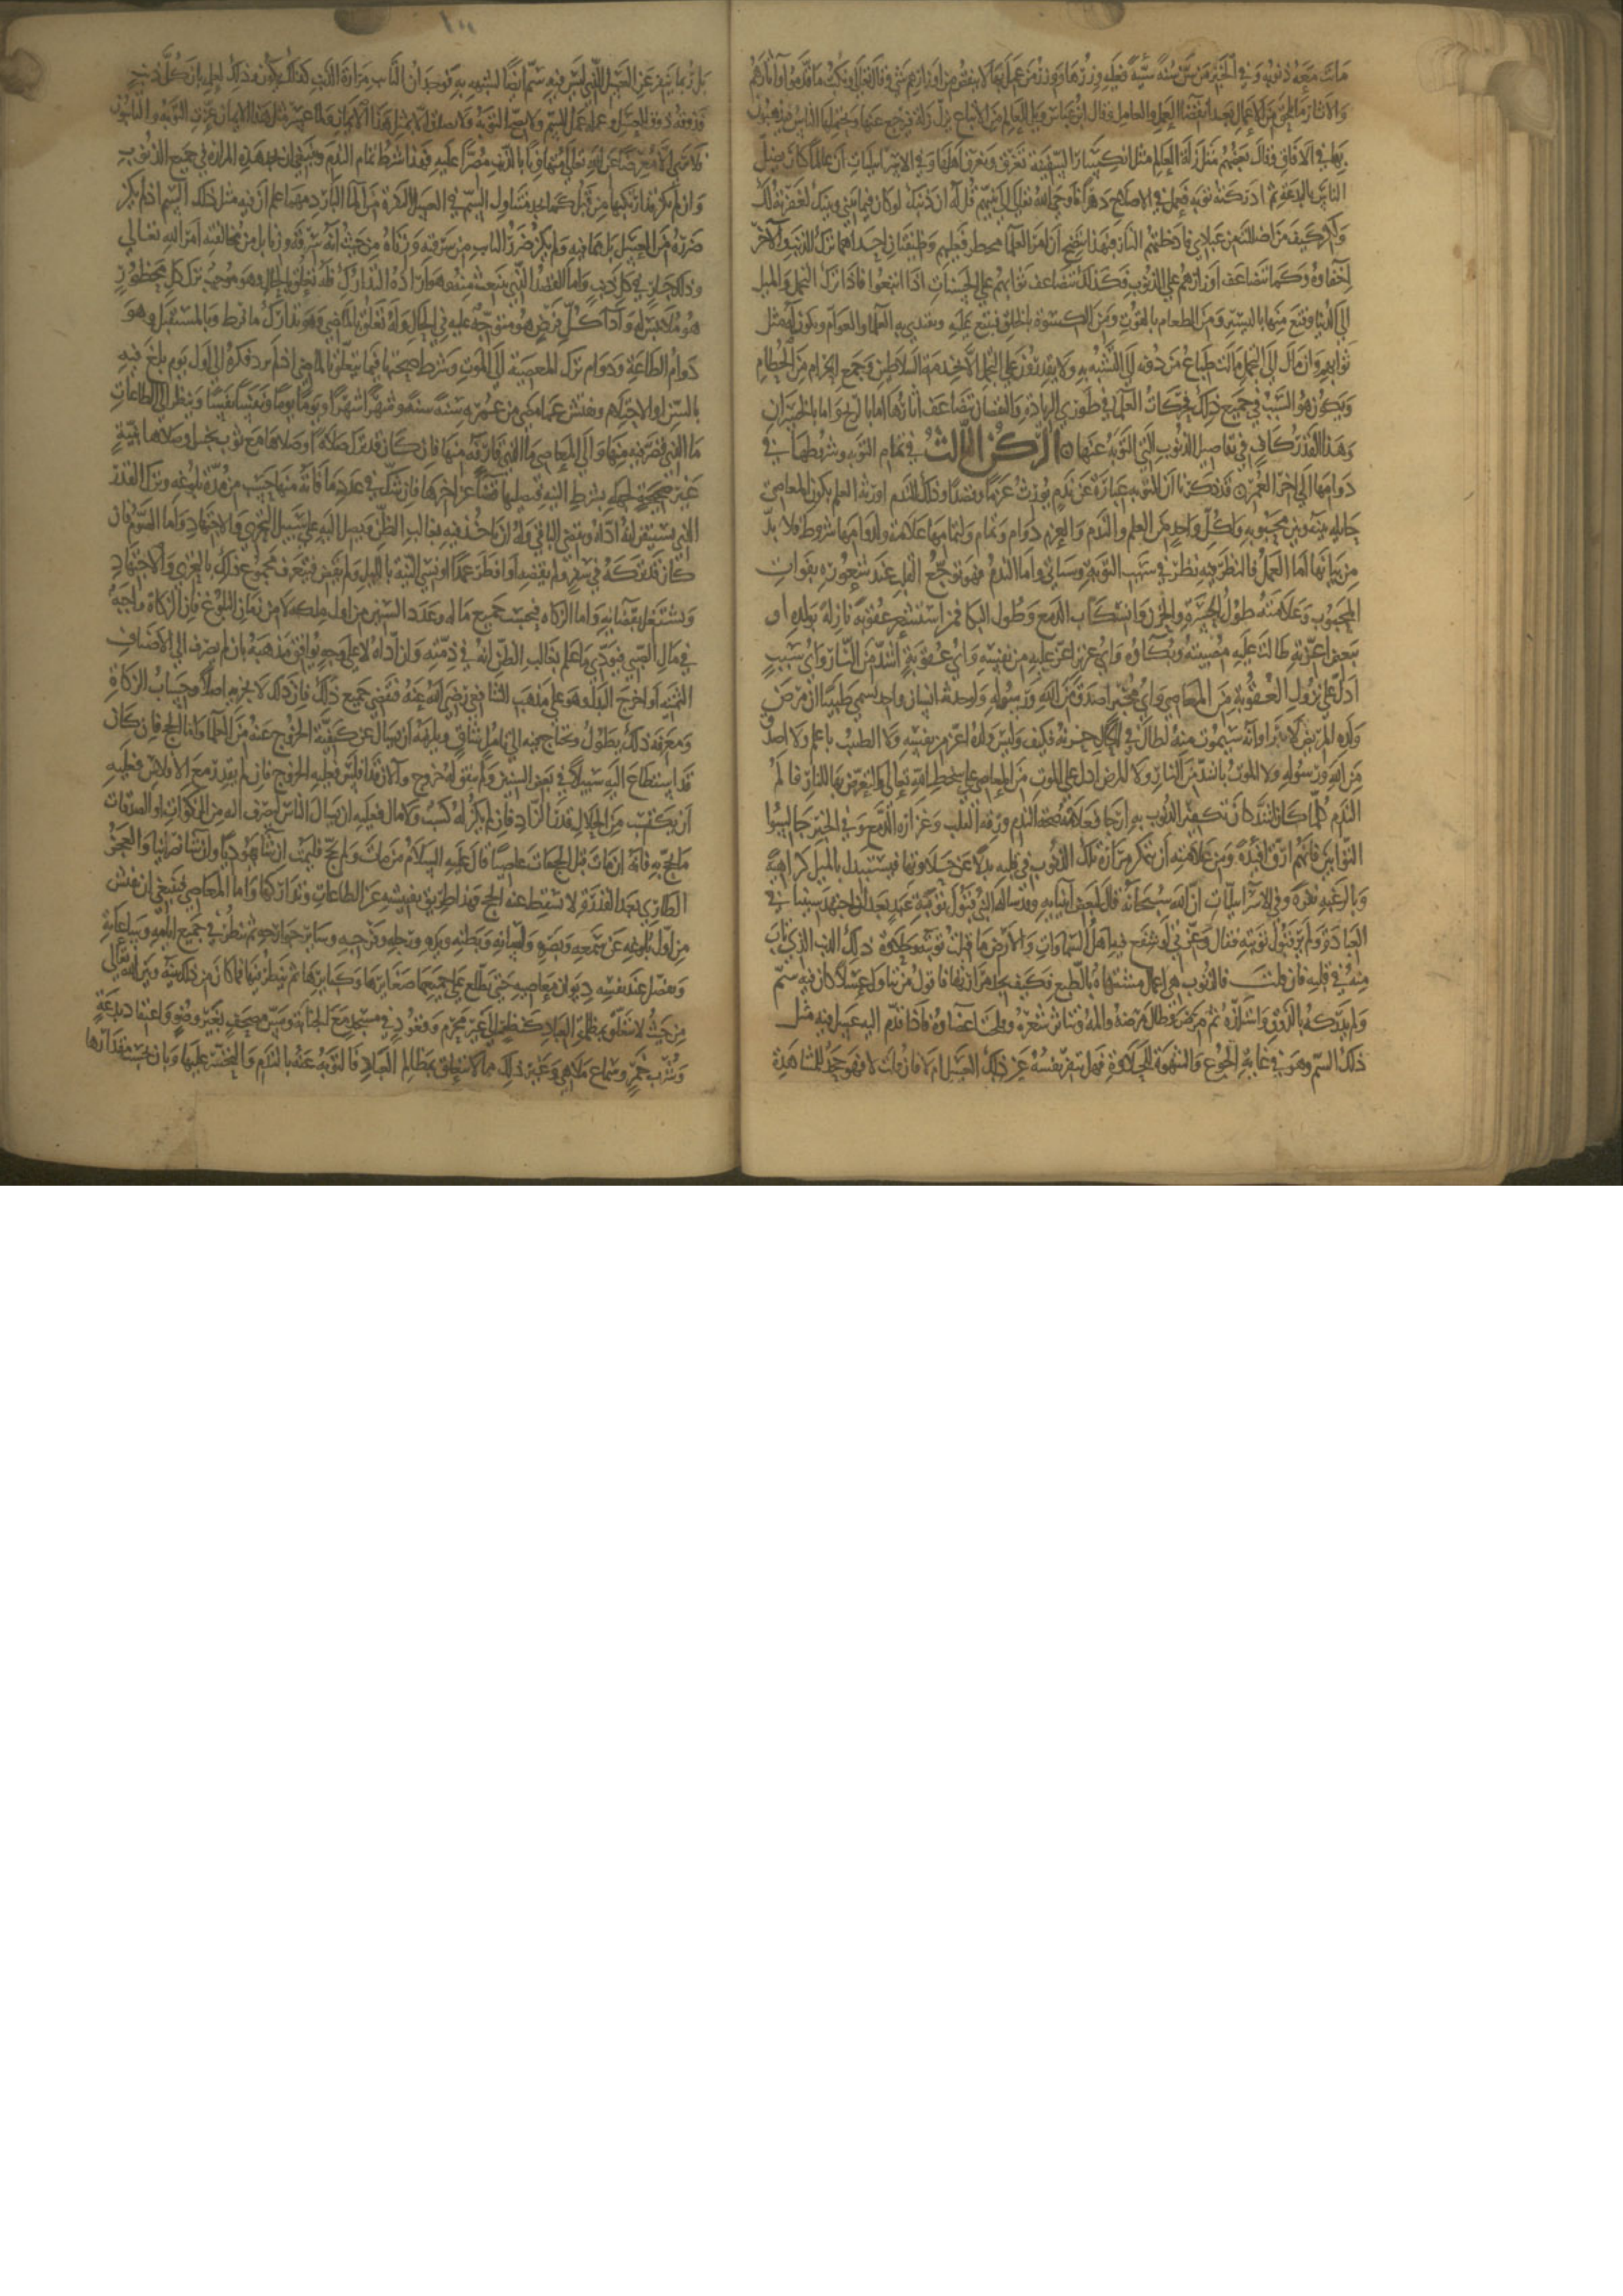 مات معه ذنوبه وفي الخبر من سن سنة سيئة فعليه وزرها ووزر من عمل بها لا ينقص من اوزارهم شي وقال تعالى ونكتب ما قدموا واثارهم
والاثار ما يلحق من الاعمال بعد انقضا العمل والعامل وقال ابن عباس ويل للعالم من الاتباع يزل زلة فيرجع عنها ويحملها الناس فيذهبون
بها في الافاق وقال بعضهم مثل زلة العالم مثل انكسار السفينة تغرق ويغرق اهلها وفي الاسرائيليات ان عالما كان يضل
الناس بالبدعة ثم ادركته توبة فعمل في الاصلاح دهرا فاوحى الله تعالى الى نبيهم قل له ان ذنبك لو كان فيما بيني وبينك لغفرته لك
ولكن كيف بمن اضللت من عبادي فادخلتهم النار فبهذا يتضح ان امر العلما مخطر فعليهم وظيفتان احداهما ترك الذنب والاخرى
اخفاوه وكما تتضاعف اوزارهم على الذنوب فكذلك تتضاعف ثوابهم على الحسنات اذا اتبعوا فاذا ترك التجمل والميل
الى الدنيا وقنع منها باليسير ومن الطعام بالقوت ومن الكسوة بالخلق فيتبع عليه ويقتدي به العلما والعوام ويكون له مثل
ثوابهم وان مال الى التجمل مالت طباع من دونه الى التشبه به ولا يقدرون على التجمل الا بخدمة السلاطين وجمع الحرام من الحطام
ويكون هو السبب في جميع ذلك فحركات العلما في طوري الزيادة والنقصان تتضاعف اثارها اما بالربح واما بالخسران
وهذا القدر كاف في تفاصيل الذنوب التي التوبة عنها ه الركن الثالث في تمام التوبة وشروطها في
دوامها الى اخر العمر ه قد ذكرنا ان التوبة عبارة عن ندم يورث عزما وقصدا وذلك الندم اورثه العلم بكون المعاصي
حايلة بينه وبين محبوبه ولكل واحد من العلم والندم والعزم دوام وتمام ولتمامها علامة ولدوامها شروط فلا بد
من بيانها اما العلم فالنظر فيه نظر في سبب التوبة وسياتي واما الندم فهو توجع القلب عند شعوره بفوات
المحبوب وعلامته طول الحسرة والحزن وانسكاب الدمع وطول البكا فمن استشعر عقوبة نازلة بولده او
ببعض اعزته طالت عليه مصيبته وبكاوه واي عزيز اعز عليه من نفسه واي عقوبة اشد من النار واي سبب
ادل على نزول العقوبة من المعاصي واي مخبر اصدق من الله ورسوله ولو حدثه انسان واحد يسمى طبيبا ان مرض
ولده المريض لا يبرا وانه سيموت منه لطال في الحال حزنه فكيف وليس ولده اعز من نفسه ولا الطبيب باعلم ولا اصدق
من الله ورسوله ولا الموت باشد من النار ولا المرض ادل على الموت من المعاصي على سخط الله تعالى والتعرض بها للنار فالم
الندم كلما كان اشد كان تكفير الذنوب به ارجا فعلامة صحة الندم ورقة القلب وغزارة الدمع وفي الخبر جالسوا
التوابين فانهم ارق افئدة ومن علامته ان يتمكن مرارة تلك الذنوب في قلبه بدلا عن حلاوتها فيستبدل بالميل كراهية
وبالرغبة نفرة وفي الاسرائيليات ان الله سبحانه قال لبعض انبيايه وقد ساله قبول توبة عبد بعد ان اجتهد سنينا في
العبادة ولم ير قبول توبته فقال وعزتي لو شفع فيه اهل السماوات والارض ما قبلت توبته وحلاوة ذلك الذنب الذي تاب
منه في قلبه فان قلت فالذنوب هي اعمال مشتهاة بالطبع فكيف يجد مرارتها فاقول من تناول عسلا كان فيه سم
ولم يدركه بالذوق واستلذه ثم مرض وطال مرضه والمه وتناثر شعره وفلجت اعضاوه فاذا قدم اليه عسل فيه مثل
ذلك السم وهو في غاية الجوع والشهوة للحلاوة فهل تنفر نفسه عن ذلك العسل ام لا فان قلت لا فهو جحد للمشاهدة
بل ربما تنفر عن العسل الذي ليس فيه سم ايضا لشبهه به فوجدان التايب مرارة الذنب كذلك يكون وذلك لعلمه بان كل ذنب
فذوقه ذوق العسل وعمله عمل السم ولا تصح التوبة ولا تصدق الا بمثل هذا الايمان ولما عز مثل هذا الايمان عزت التوبة والتايبون
فلا ترى الا معرضا عن الله تعالى متهاونا بالذنوب مصرا عليه فهذا شرط تمام الندم وينبغي ان يجد هذه المرارة في جميع الذنوب
وان لم يكن قد ارتكبها من قبل كما يجد متناول السم في العسل النفرة من الما البارد مهما علم ان فيه مثل ذلك السم اذ لم يكن
ضرره من العسل بل مما فيه ولم يكن ضرر التايب من سرقته وزناه من حيث انه سرقة وزنا بل من مخالفته امر الله تعالى
وذلك جار في كل ذنب واما القصد الذي ينبعث منه وهو ارادة التدارك فله تعلق بالحال وهو موجب ترك كل محظور
هو ملابس له وادا كل فرض هو متوجه عليه في الحال وله تعلق بالماضي وهو تدارك ما فرط وبالمستقبل وهو
دوام الطاعة ودوام ترك المعصية الى الموت وشرط صحتها فيما يتعلق بالماضي ان يرد فكره الى اول يوم بلغ فيه
بالسن او الاحتلام ويفتش عما مضى من عمره سنة سنة وشهرا شهرا ويوما يوما ونفسا نفسا وينظر الى الطاعات
ما الذي قصر فيه منها والى المعاصي ما الذي قارفه منها فان كان قد ترك صلاة او صلاها مع ثوب نجس او صلاها بنية
غير صحيحة لجهله بشرط النية فيصليها قضا عن اخرها فان شك في عدد ما فاته منها حسب من مدة بلوغه وترك القدر
الذي يستيقن انه اداه ويقضي الباقي وله ان ياخذ فيه بغالب الظن ويصل اليه على سبيل التحري والاجتهاد واما الصوم فان
كان قد تركه في سفر ولم يقضه او افطر عمدا او نسي النية بالليل ولم يقض فيتعرف مجموع ذلك بالتحري والاجتهاد
ويشتغل بقضايه واما الزكاة فيحسب جميع ماله وعدد السنين من اول ملكه لا من زمان البلوغ فان الزكاة واجبة
في مال الصبي فيودي ما علم بغالب الظن انه في ذمته وان اداه لا على وجه يوافق مذهبه بان لم يصرف الى الاصناف
الثمنية او اخرج البدل وهو على مذهب الشافعي رضي الله عنه فيقضي جميع ذلك فان ذلك لا يجزيه اصلا وحساب الزكاة
ومعرفة ذلك يطول ويحتاج فيه الى تامل شاف ويلزمه ان يسال عن كيفية الخروج عنه من العلما واما الحج فان كان
قد استطاع اليه سبيلا في بعض السنين ولم يتفق له خروج والان قد افلس فعليه الخروج فان لم يقدر مع الافلاس فعليه
ان يكتسب من الحلال قدر الزاد فان لم يكن له كسب ولا مال فعليه ان يسال الناس ليصرف اليه من الزكوات او الصدقات
ما يحج به فانه ان مات قبل الحج مات عاصيا قال عليه السلام من مات ولم يحج فليمت ان شا يهوديا وان شا نصرانيا والعجز
الطاري بعد القدرة لا يسقط عنه الحج وهذا طريق تفتيشه عن الطاعات وتداركها واما المعاصي فينبغي ان يفتش
من اول بلوغه عن سمعه وبصره ولسانه وبطنه ويده ورجله وفرجه وساير جوارحه ثم ينظر في جميع ايامه وساعاته
ويفصل عند نفسه ديوان معاصيه حتى يطلع على جميعها صغايرها وكبايرها ثم ينظر فيها فما كان من ذلك بينه وبين الله تعالى
من حيث لا يتعلق بمظلمة العباد كنظر الى غير محرم وقعود في مسجد مع الجنابة ومس مصحف بغير وضوء واعتقاد بدعة
وشرب خمر وسماع ملاهي وغير ذلك مما لا يتعلق بمظالم العباد فالتوبة عنه بالندم والتحسر عليها وبان يحسب مقدارها